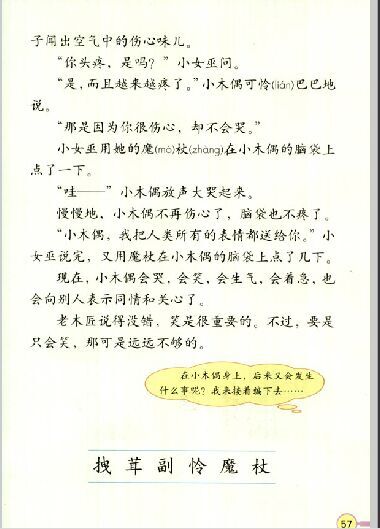 子闻出空气中的伤心味儿。
“你头疼，是吗？”小女巫问。
“是，而且越来越疼了。”小木偶可怜(lián)巴巴地
说。
“那是因为你很伤心，却不会哭。”
小女巫用她的魔(mó)杖(zhàng)在小木偶的脑袋上
点了一下。
“哇——”小木偶放声大哭起来。
慢慢地，小木偶不再伤心了，脑袋也不疼了。
“小木偶，我把人类所有的表情都送给你。”小
女巫说完，又用魔杖在小木偶的脑袋上点了几下。
现在，小木偶会哭，会笑，会生气，会着急，也
会向别人表示同情和关心了。
老木匠说得没错，笑是很重要的。不过，要是
只会笑，那可是远远不够的。
在小木偶身上，后来又会发生
什么事呢？我来接着编下去……
拽 茸 副 怜 魔 杖
57